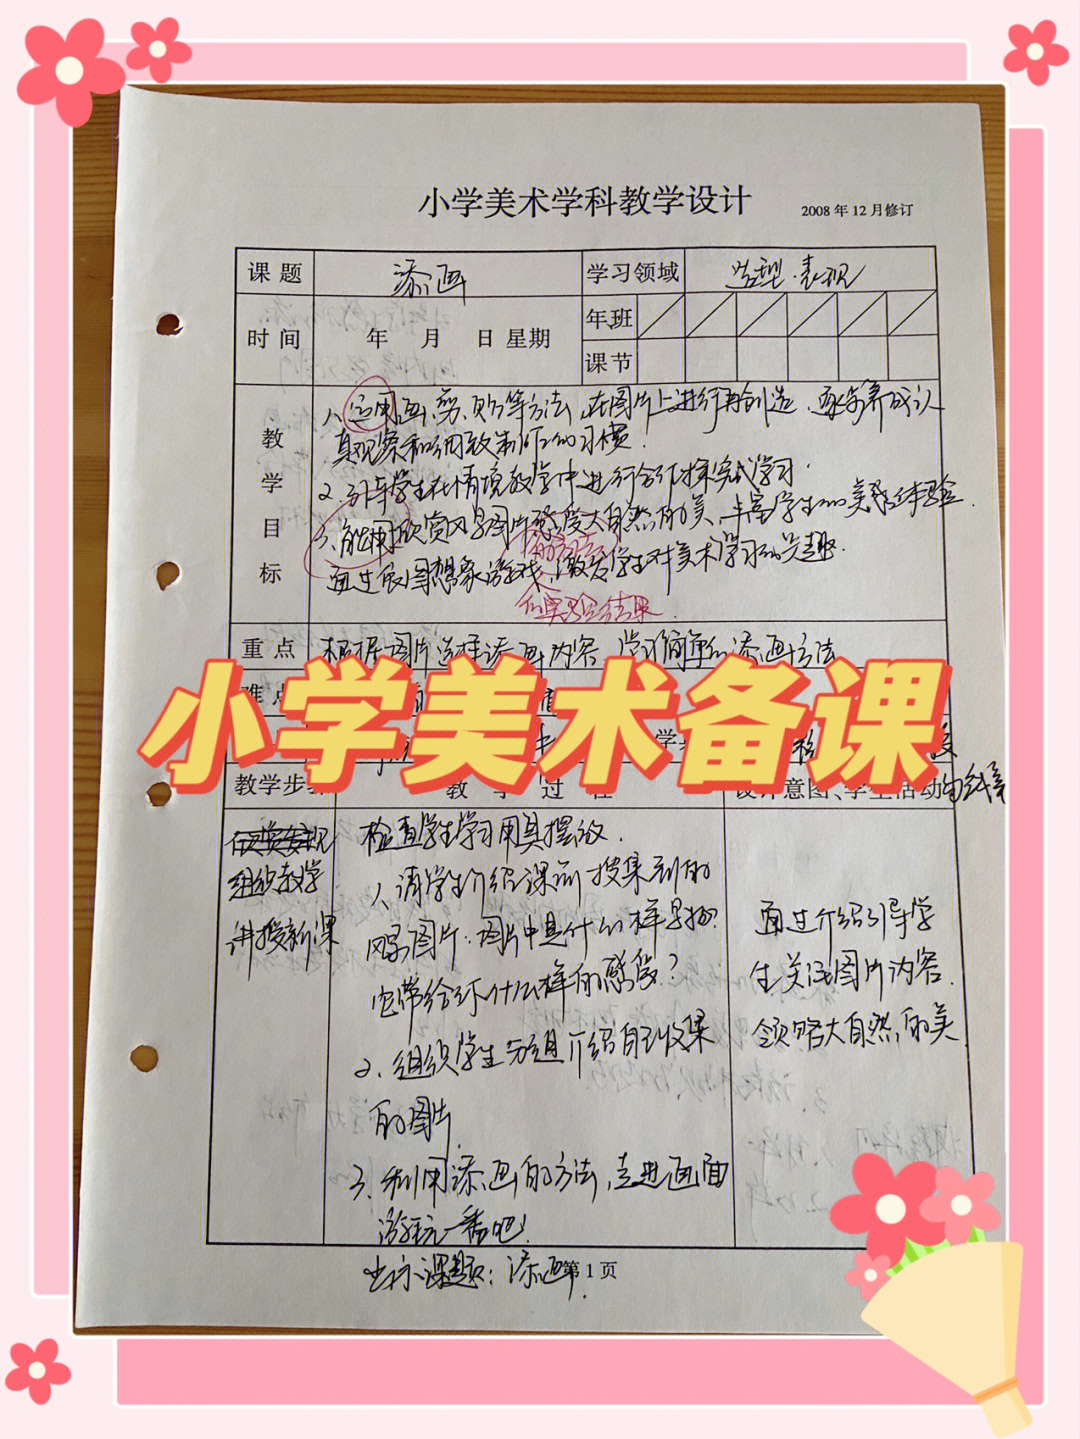 小学美术学科教学设计
2008年12月修订
课题 添画 学习领域 造型·表现
时间 年 月 日 星期 年班
课节
教学目标
1、运用画、剪、贴等方法,在图片上进行再创造,逐步养成认
真观察和细致制作的习惯.
2、引导学生在情境教学中进行合作探究式学习.
3、能用欣赏风景图片感受大自然的美,丰富学生的美感体验.
的方法
通过展图想象游戏,激发学生对美术学习的兴趣.
和实验结果
重点 根据图片选择添画内容 学习简单的添画方法
难点
小学美术备课
教学步 教学过程 设计意图、学生活动
组织教学
检查学生学习用具摆放.
讲授新课
1、请学生介绍课前搜集到的
风景图片:图片中是什么样景物?
它带给你什么样的感觉?
2、组织学生分组介绍自己收集
的图片.
3、利用添画的方法,走进画面
游玩一番吧!
出示课题:添画.
通过介绍引导学
生关注图片内容.
领略大自然的美
第1页